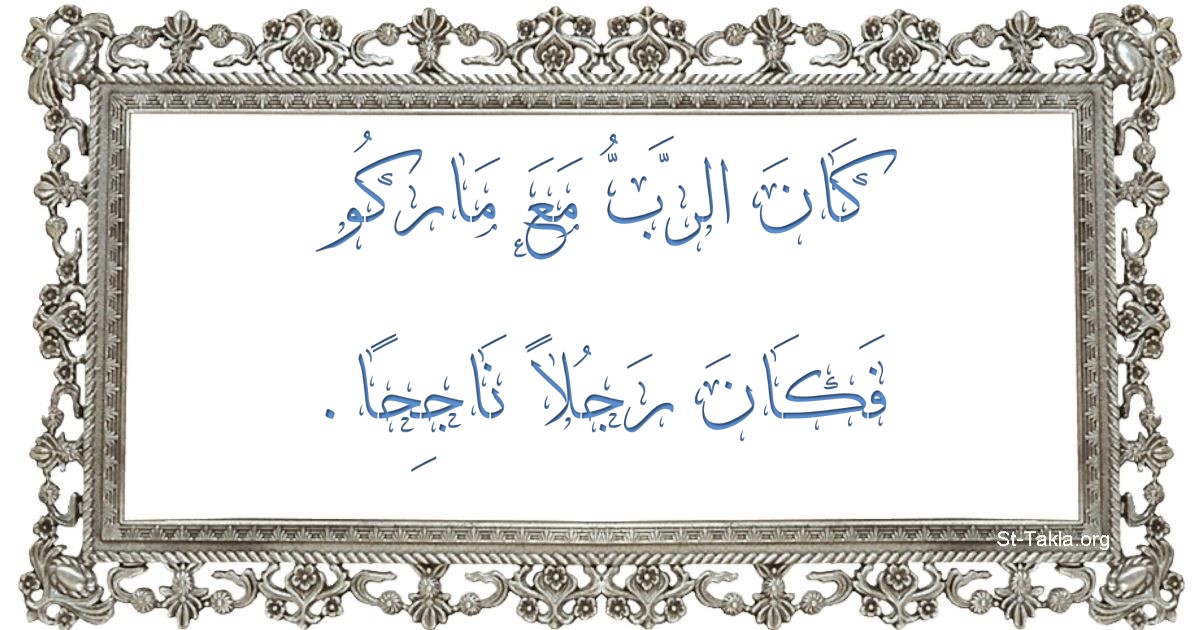 كَانَ الرَّبُّ مَعَ مَاركُو
فَكَانَ رَجُلاً نَاجِحًا .
St-Takla.org